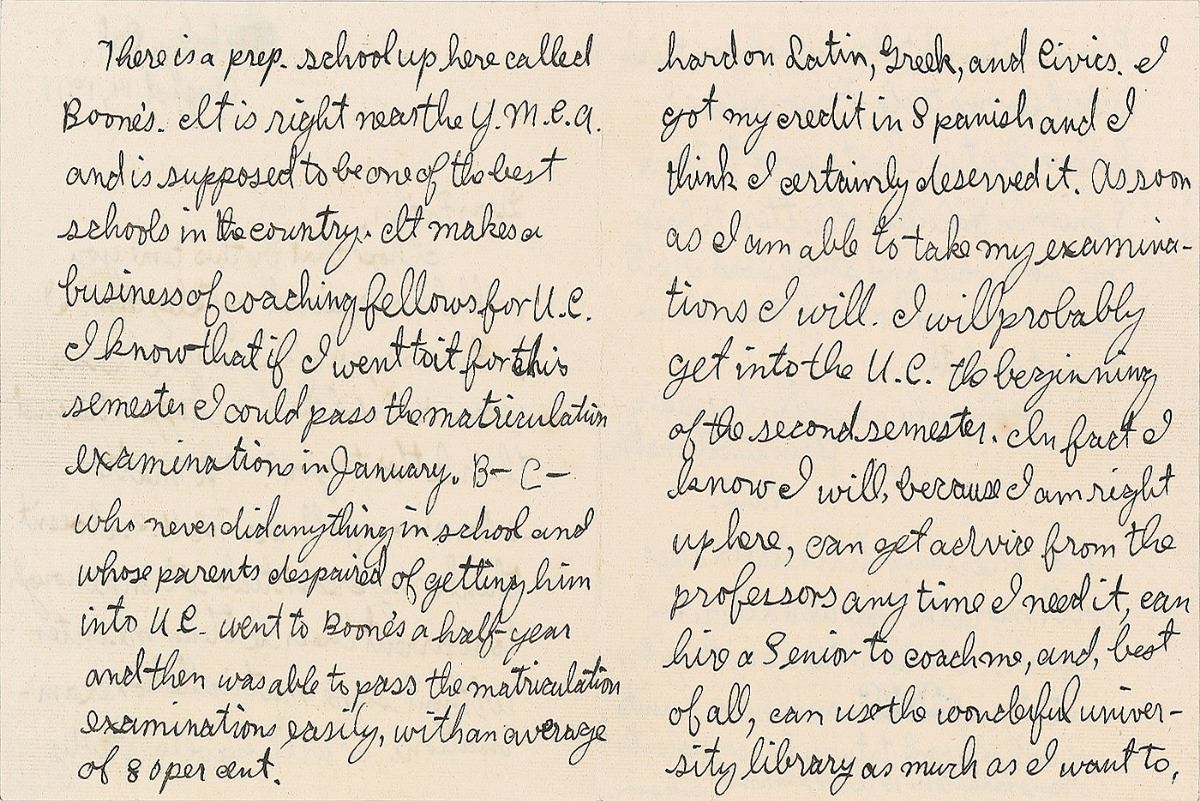 There is a prep. school up here called
Boone's. It is right near the Y.M.C.A.
and is supposed to be one of the best
schools in the country. It makes a
business of coaching fellows for U.C.
I know that if I went to it for this
semester I could pass the matriculation
examinations in January. B— C—
who never did anything in school and
whose parents despaired of getting him
into U.C. went to Boone's a half-year
and then was able to pass the matriculation
examinations easily, with an average
of 80 per cent.
hard on Latin, Greek, and Civics. I
got my credit in Spanish and I
think I certainly deserved it. As soon
as I am able to take my examina-
tions I will. I will probably
get into the U.C. the beginning
of the second semester. In fact I
know I will, because I am right
up here, can get advice from the
professors any time I need it, can
hire a Senior to coach me, and, best
of all, can use the wonderful univer-
sity library as much as I want to,